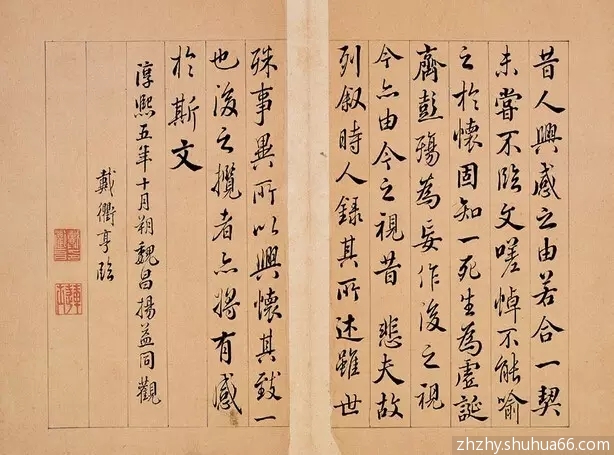 昔人興感之由若合一契
未嘗不臨文嗟悼不能喻
之於懷固知一死生為虛誕
齊彭殤為妄作後之視
今亦由今之視昔 悲夫故
列叙時人錄其所述雖世
殊事異所以興懷其致一
也後之攬者亦將有感
於斯文
淳熙五年十月朔魏昌揚益同觀
戴衢亨臨
zhzhy.shuhua66.com